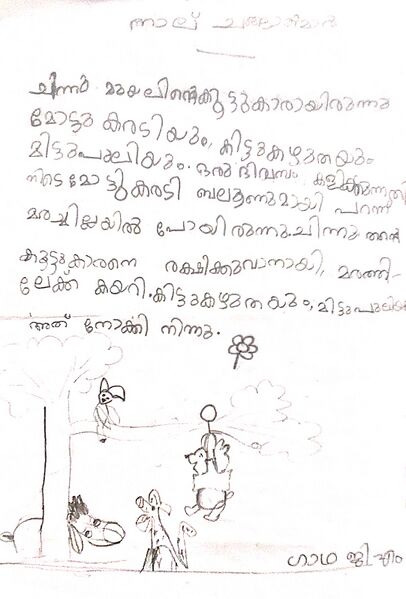 നാല് ചങ്ങാതിമാർ
ചിന്നു മുയലിന്റെകൂട്ടുകാരായിരുന്നു
മോട്ടു കരടിയും, കിട്ടുകഴുതയും
മിട്ടുപുലിയും. ഒരു ദിവസം കളിക്കുന്നതി
നിടെ മോട്ടുകരടി ബലൂണുമായി പറന്ന്
മരച്ചില്ലയിൽ പോയിരുന്നു. ചിന്നു തന്റെ
കൂട്ടുകാരനെ രക്ഷിക്കുവാനായി, മരത്തി-
ലേക്ക് കയറി. കിട്ടുകഴുതയും, മിട്ടുപുലിയും
അത് നോക്കി നിന്നു.
ഗാഥ ജി. എം